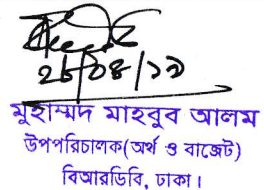 ২৮/০৪/১৯
মুহাম্মদ মাহবুব আলম
উপপরিচালক(অর্থ ও বাজেট)
বিআরডিবি, ঢাকা।